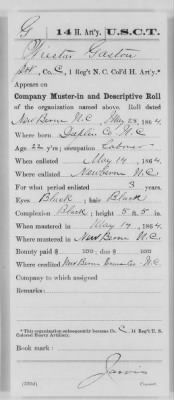 G 14 H. Art'y. U.S.C.T.
Winston Gaston
Pvt., Co. C, 1 Reg't N. C. Col'd H. Art'y.*
Appears on
Company Muster-in and Descriptive Roll
of the organization named above. Roll dated
New Berne N.C., May 28, 1864.
Where born Duplin Co N.C.
Age 22 y'rs; occupation Laborer
When enlisted May 14, 1864.
Where enlisted Newbern N.C.
For what period enlisted 3 years.
Eyes Black; hair Black
Complexion Black; height 5 ft. 5 in.
When mustered in May 17, 1864.
Where mustered in New Bern N.C.
Bounty paid $ 100; due $ 100
Where credited New Berne N.C.
Company to which assigned
Remarks:
* This organization subsequently became Co. C, 14 Reg't U. S.
Colored Heavy Artillery.
Book mark:
Jarvis
Copyist.